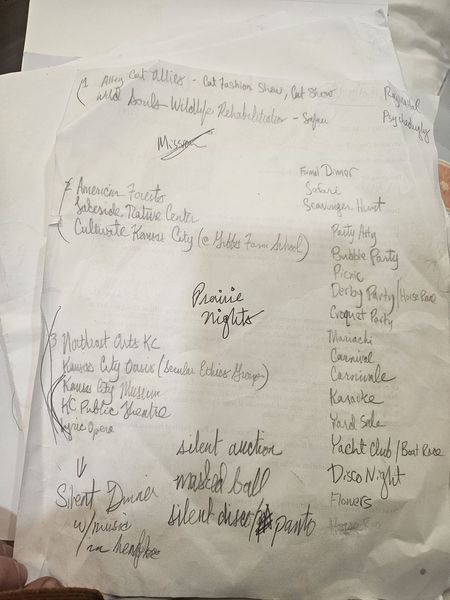 1 Alley Cat Allies - Cat Fashion Show, Cat Show
Wild Souls Wildlife Rehabilitation - Safari
Mission
2 American Forests
Lakeside Nature Center
Cultivate Kansas City (@ Gibbs Farm School)
Prairie
Nights
3 Northeast Arts KC
Kansas City Oasis (Secular Ethics Group)
Kansas City Museum
KC Public Theatre
Lyric Opera
Silent Dinner
w/music
silent auction
masked ball
silent disco/panto
Formal Dinner
Safari
Scavenger Hunt
Party Arty
Bubble Party
Picnic
Derby Party/Horse Race
Croquet Party
Mariachi
Carnival
Carnivale
Karaoke
Yard Sale
Yacht Club/Boat Race
Disco Night
Flowers